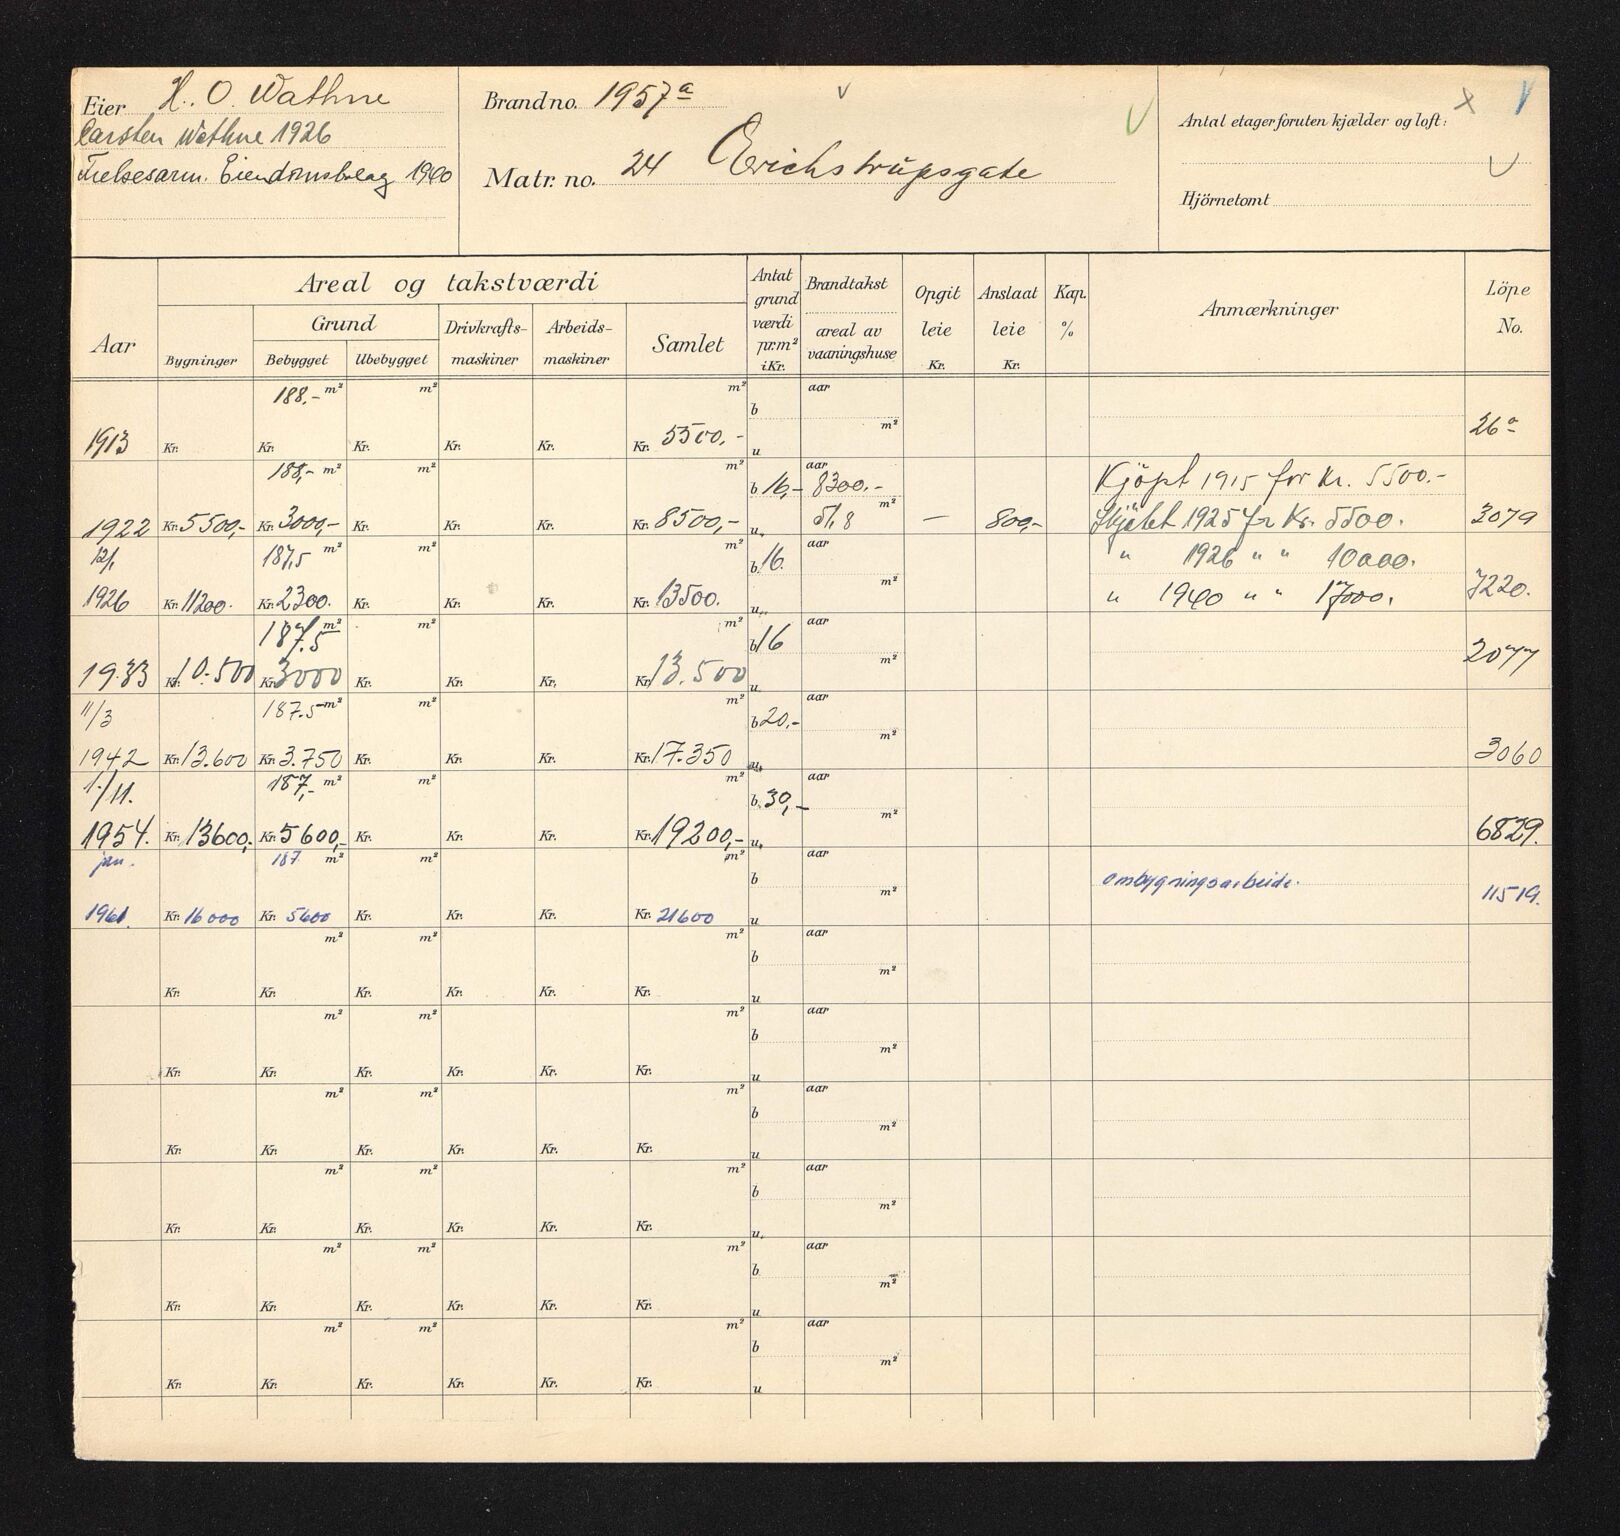 Eier H. O. Wathne
Carsten Wathne 1926
Frelsesarm. Eiendomsbolag 1940
Brandno. 1957a
Matr. no. 24 Erichstrupsgate
Antal etager foruten kjælder og loft:
Hjörnetomt
Aar
Areal og takstværdi
Bygninger
Grund
Bebygget
Ubebygget
Drivkrafts-
maskiner
Arbeids-
maskiner
Samlet
Antat
grund
værdi
pr.m²
i Kr.
Brandtakst
areal av
vaaningshuse
Opgit
leie
Kr.
Anslaat
leie
Kr.
Kap.
%
Anmærkninger
Löpe
No.
188,- m² m² m² b aar m²
1913 Kr. Kr. Kr. Kr. Kr. Kr. 5500,- u 26a
188,- m² m² m² b 16,- aar 8300.- Kjöpt 1915 for Kr. 5500.-
1922 Kr. 5500,- Kr. 3000,- Kr. Kr. Kr. Kr. 8500,- u. 51,8 m² — 800,- Skjötet 1925 fr Kr. 5500. 3079
12/1 187,5 m² m² m² b. 16. aar m² " 1926 " " 10000.
1926 Kr. 11200. Kr. 2300. Kr. Kr. Kr. Kr. 13500. u. " 1940 " " 17000. 7220.
187.5 m² m² m² b 16 aar m²
1933 Kr. 10.500 Kr. 3000 Kr. Kr. Kr. Kr. 13.500 u 2077
11/3 187.5 m² m² m² b 20,- aar m²
1942 Kr. 13.600 Kr. 3.750 Kr. Kr. Kr. Kr. 17.350 u. 3060
1./11. 187,- m² m² m² b. 30,- aar m²
1954. Kr. 13600,- Kr. 5600,- Kr. Kr. Kr. Kr. 19200,- u. 6829.
jan. 187 m² m² m² b aar m² ombygningsarbeide.
1961. Kr. 16000 Kr. 5600 Kr. Kr. Kr. Kr. 21600 u 11519.
m² m² m² b aar m²
Kr. Kr. Kr. Kr. Kr. Kr. u
m² m² m² b aar m²
Kr. Kr. Kr. Kr. Kr. Kr. u
m² m² m² b aar m²
Kr. Kr. Kr. Kr. Kr. Kr. u
m² m² m² b aar m²
Kr. Kr. Kr. Kr. Kr. Kr. u.
m² m² m² b aar m²
Kr. Kr. Kr. Kr. Kr. Kr. u
m² m² m² b aar m²
Kr. Kr. Kr. Kr. Kr. Kr. u